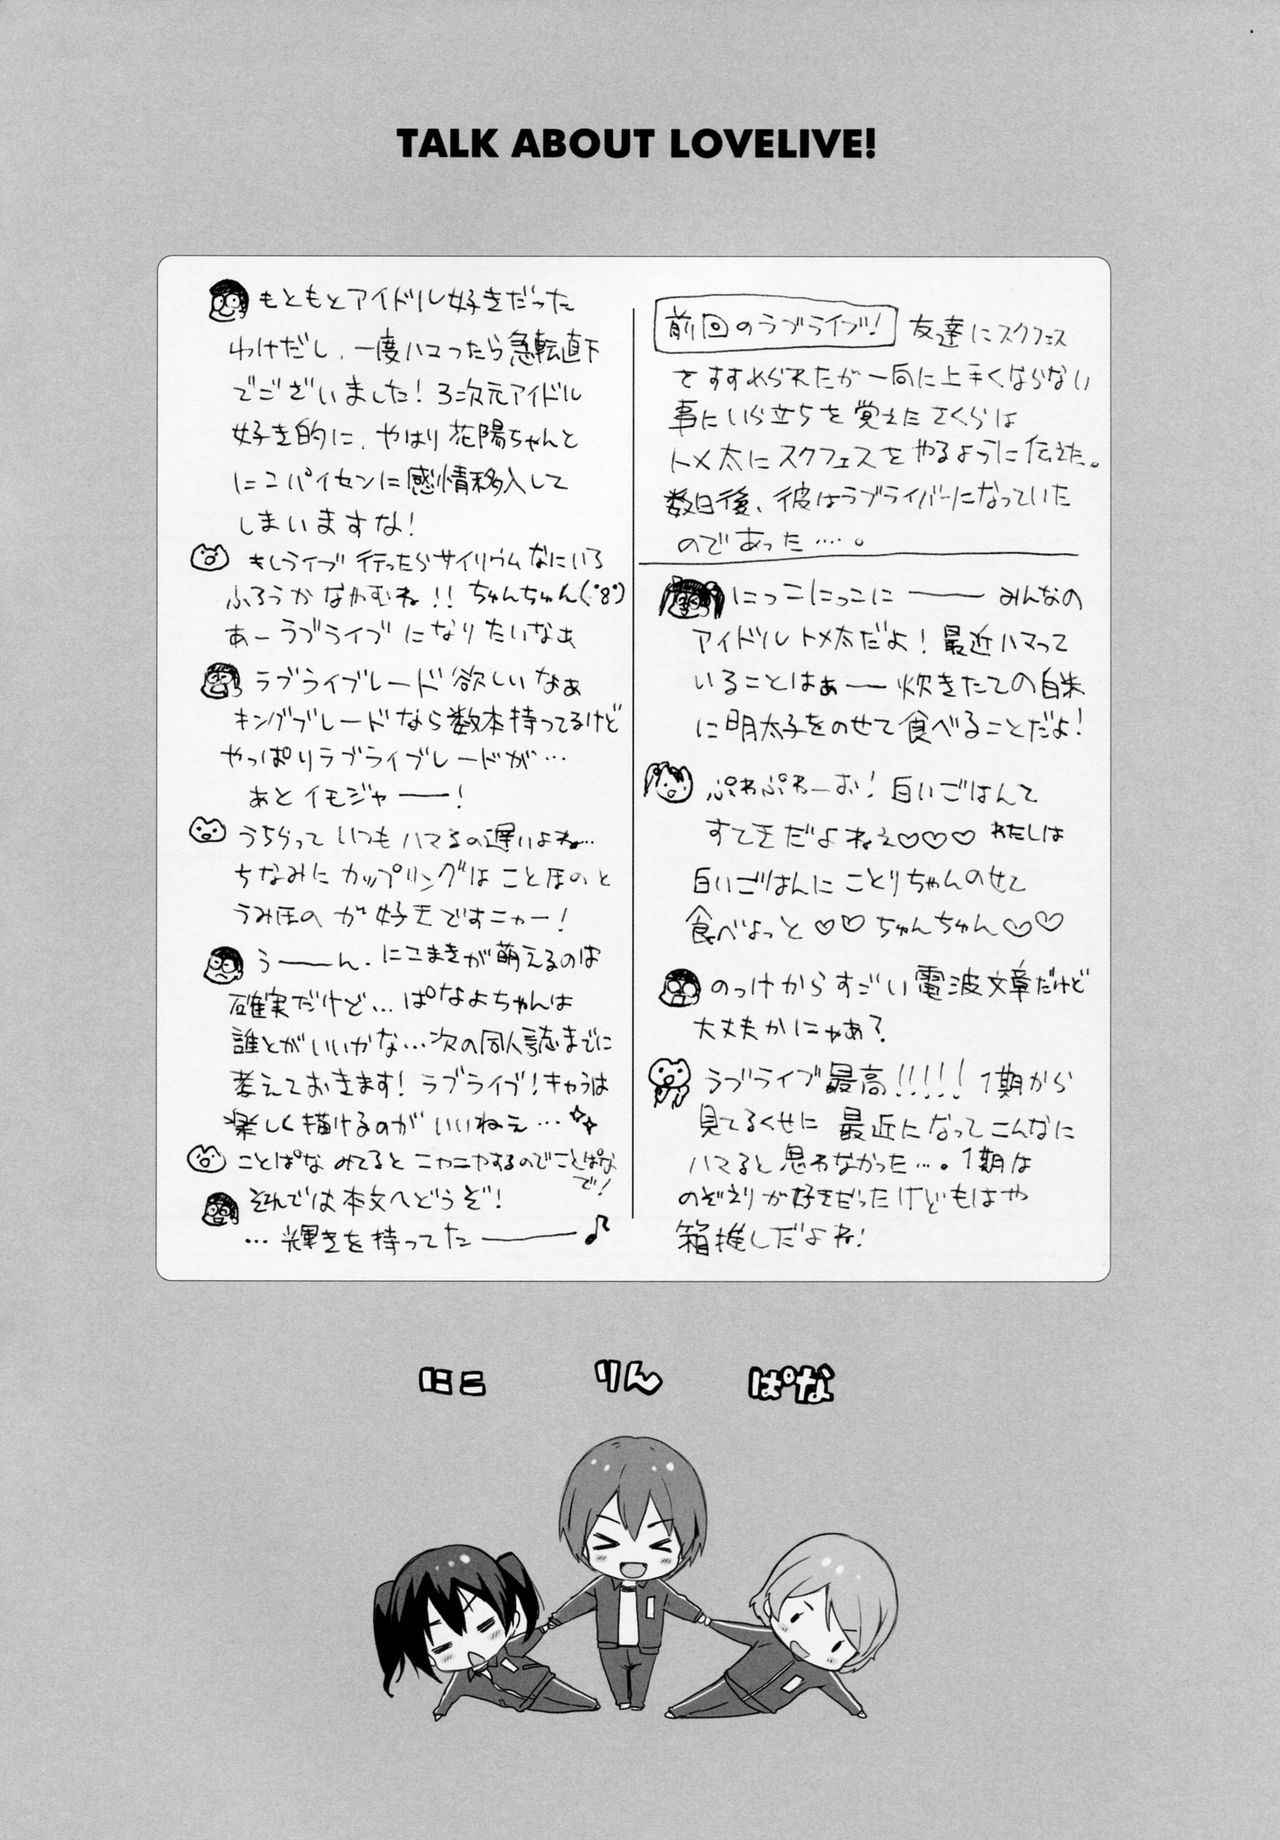 TALK ABOUT LOVELIVE!
前回のラブライブ! 友達にスクフェス
をすすめられたが一向に上手くならない
事にいら立ちを覚えたさくらは
トメ太にスクフェスをやるように伝えた。
数日後、彼はラブライバーになっていた
のであった……。
にっこにっこにーーー みんなの
アイドルトメ太だよ! 最近ハマって
いることはぁーー炊きたての白米
に明太子をのせて食べることだよ!
ぷわぷわーお! 白いごはんて
すてきだよねぇ♡♡♡ わたしは
白いごはんにことりちゃんのせて
食べよっと♡♡ ちゅんちゅん♡♡
のっけからすごい電波文章だけど
大丈夫かにゃあ?
ラブライブ最高!!!!! 1期から
見てるくせに 最近になってこんなに
ハマると思わなかった…。1期は
のぞえりが好きだったけどもはや
箱推しだよね!
もともとアイドル好きだった
わけだし、一度ハマったら急転直下
でございました! 3次元アイドル
好き的に、やはり花陽ちゃんと
にこパイセンに感情移入して
しまいますな!
もしライブ行ったらサイリウムなにいろ
ふろうかなやむね!! ちゅんちゅん(・8・)
あーラブライブになりたいなぁ
ラブライブレード欲しいなぁ
キングブレードなら数本持ってるけど
やっぱりラブライブレードが…
あとイモジャーー!
うちらっていつもハマるの遅いよね…
ちなみにカップリングはことほのと
うみほのが好きですニャー!
うーーん、にこまきが萌えるのは
確実だけど…ぱなよちゃんは
誰とがいいかな…次の同人誌までに
考えておきます! ラブライブ!キャラは
楽しく描けるのがいいねぇ…
ことぱなみてるとニヤニヤするのでことぱな
で!
それでは本文へどうぞ!
…輝きを持ってたーーー♪
にこ りん ぱな